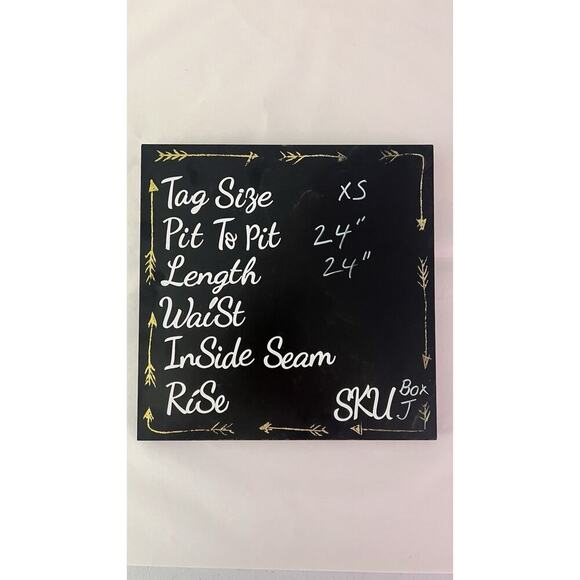 Tag Size XS
Pit To Pit 24"
Length 24"
WaiSt
InSide Seam
RiSe
SKU Box J